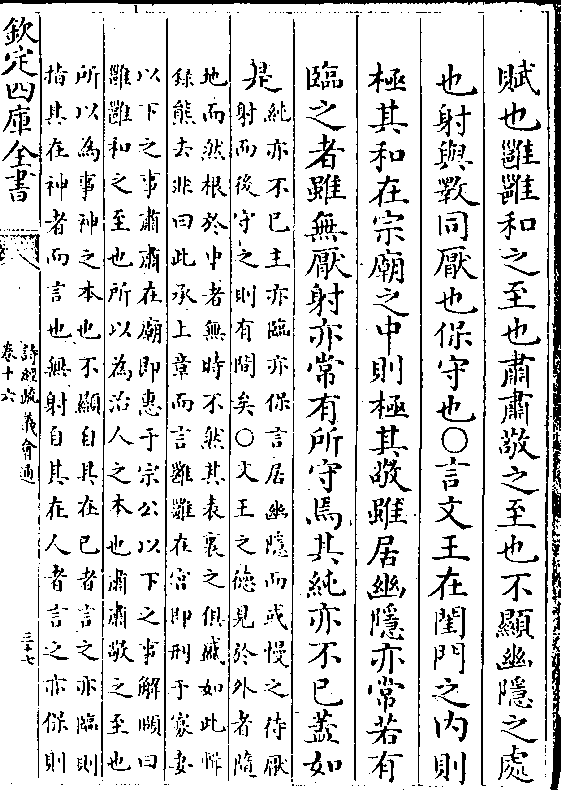 賦也雝雝和之至也肅肅敬之至也不顯幽隱之處
也射與斁同厭也保守也○言文王在閨門之內則
極其和在宗廟之中則極其敬雖居幽隱亦常若有
臨之者雖無厭射亦常有所守焉其純亦不已蓋如
是
純亦不已主亦臨亦保言居幽隱而或慢之待厭
射而後守之則有間矣○文王之德見於外者隨
地而然根於中者無時不然其表裏之俱盛如此輯
録熊去非曰此承上章而言雝雝在宮即刑于寡妻
以下之事肅肅在廟即惠于宗公以下之事解頤曰
雝雝和之至也所以為治人之本也肅肅敬之至也
所以為事神之本也不顯自其在已者言之亦臨則
指其在神者而言也無射自其在人者言之亦保則
欽定四庫全書
詩經疏義會通
卷十六
三十七